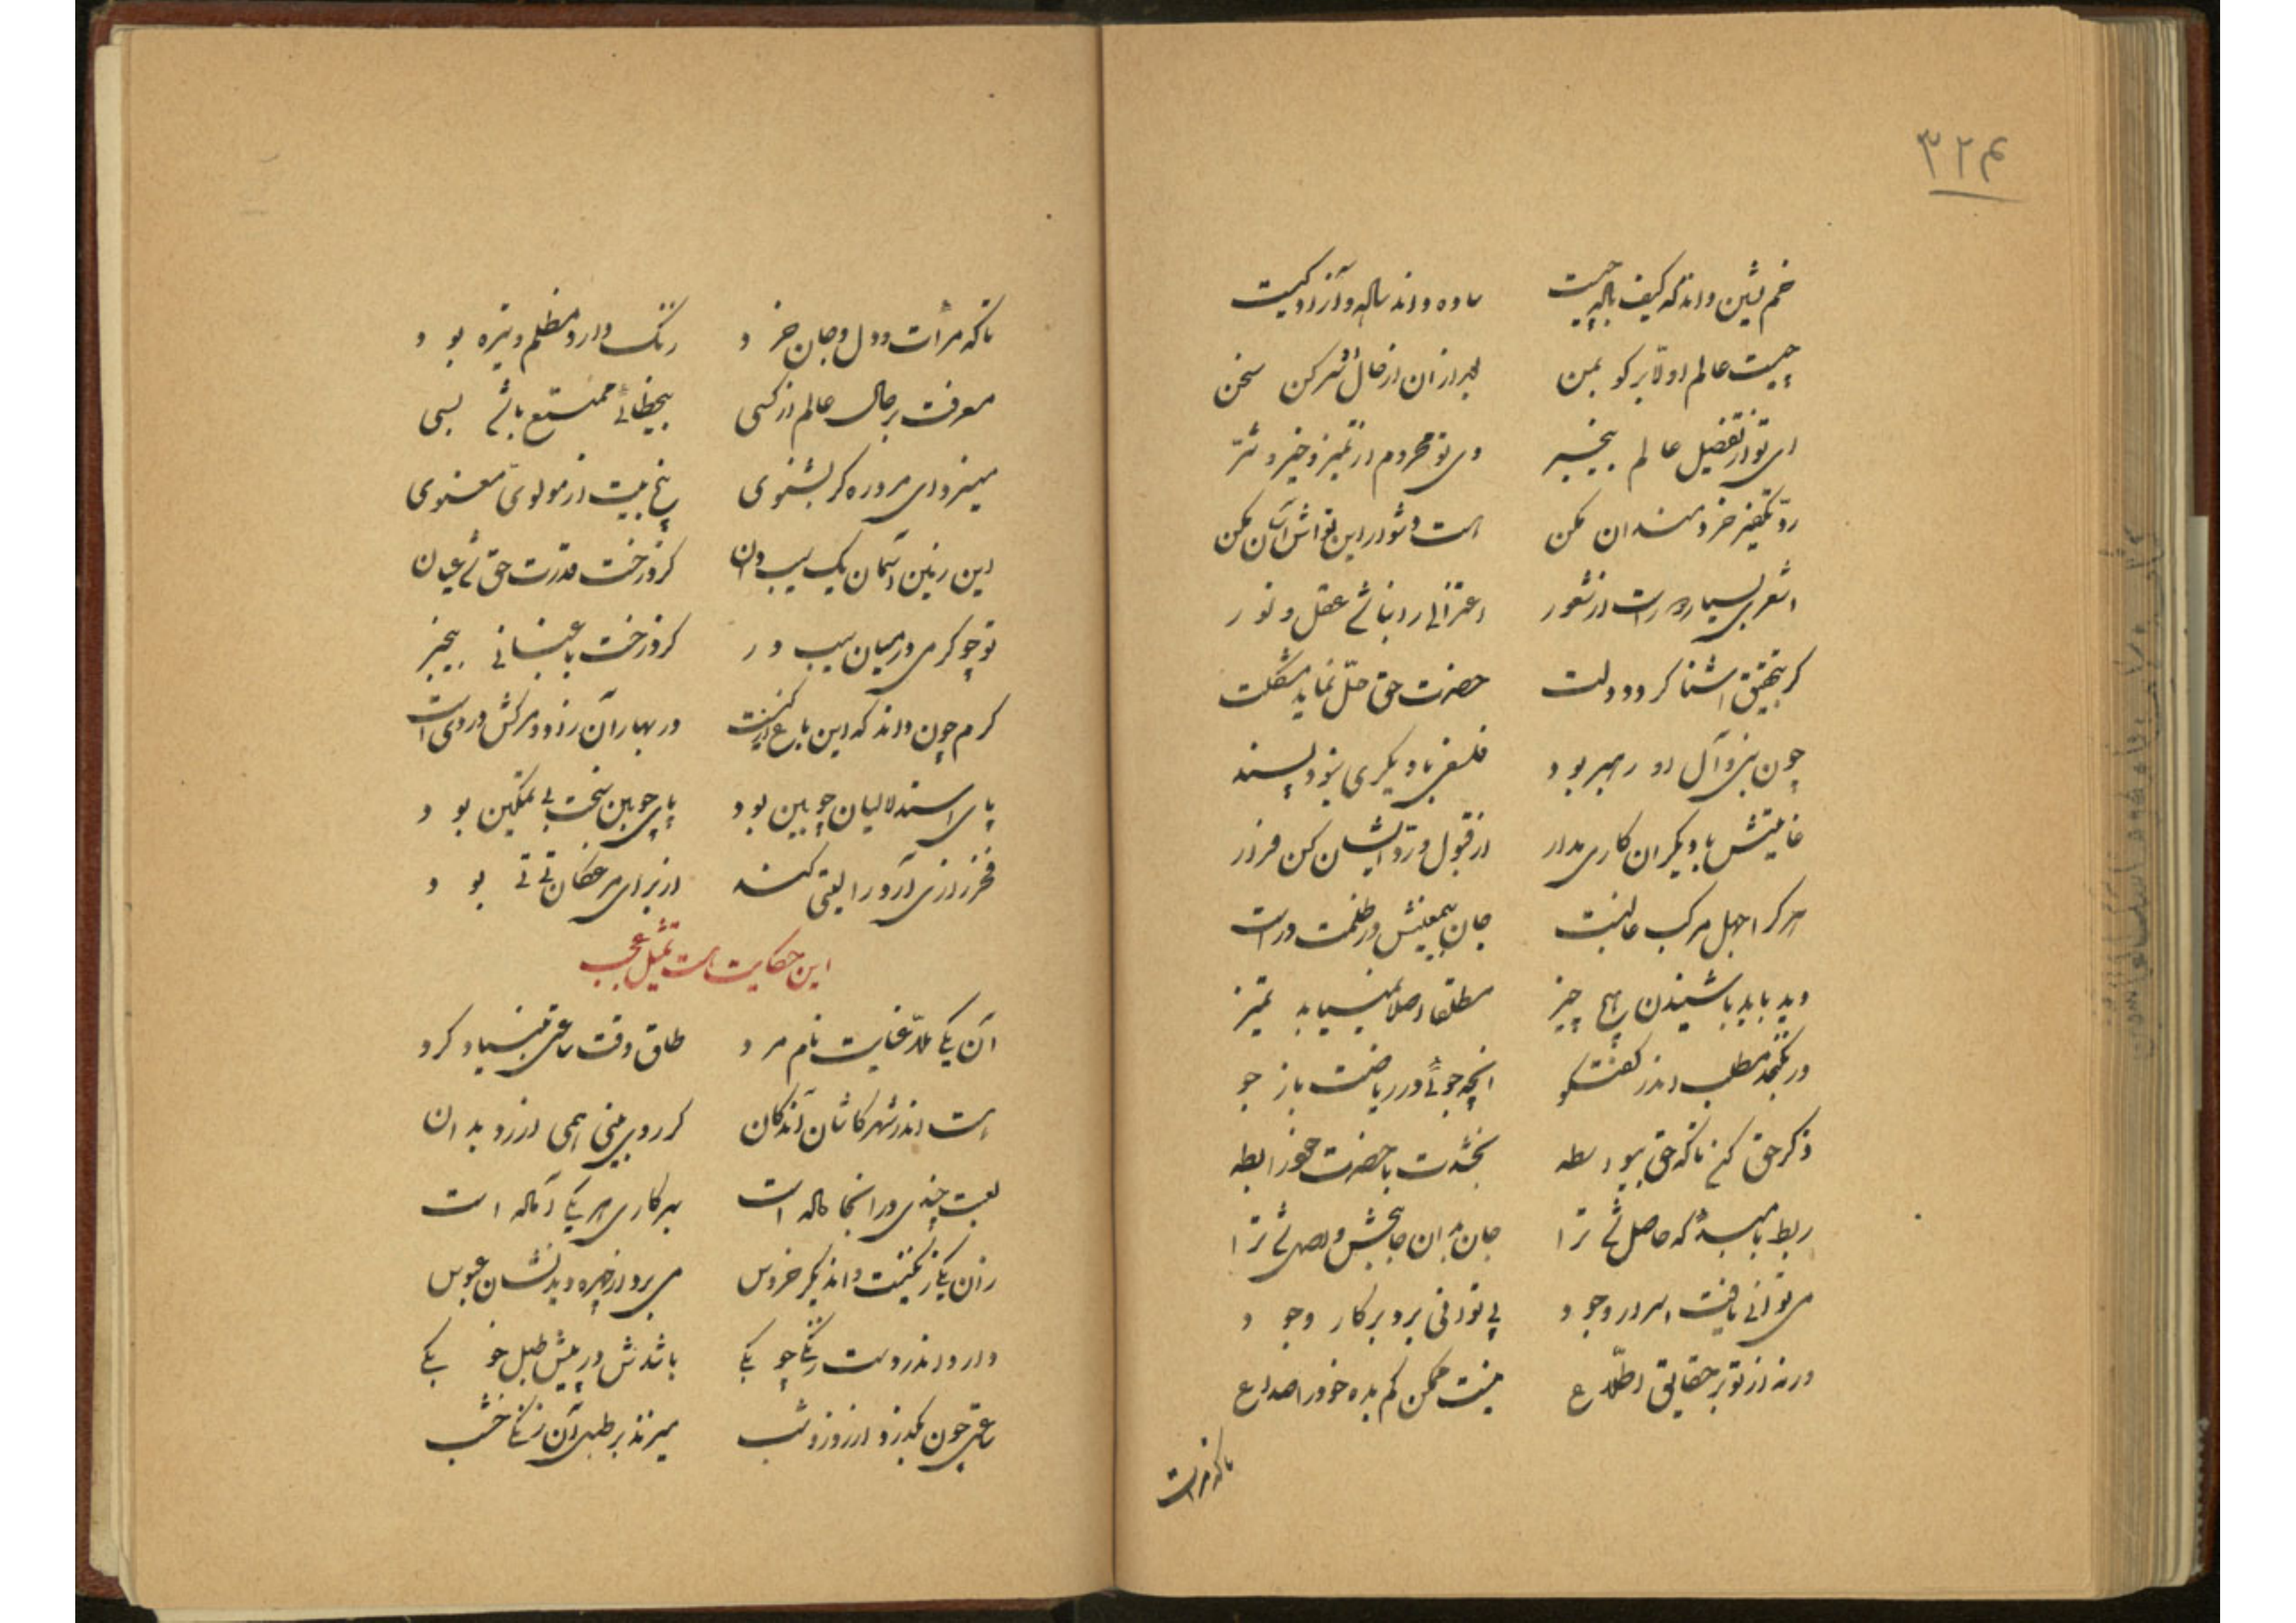 ۳۲۴
خم نشین داند که کیف باله چیست ساده داند ساله و آزاد کیست
چیست عالم اولا بر کو بمن بعد از آن از حال او سر کن سخن
ای تو از تفضیل عالم بیخبر وی تو محروم از تمیز خیر و شر
رو تکفیر خردمندان مکن
اشعری بسیار دور است از شعور اعتزالی را نباشد عقل و نور
کر بتحقیق آشنا کردد دلت حضرت حق حل نماید مشکلت
چون نبی و آل او رهبر بود فلسفی با دیکری نبود پسند
غایتش با دیکران کاری مدار از قبول و رد ایشان کن فرار
هر کرا جهل مرکب غالبست جان بیمعنیش در ظلمت در است
دید باید با شنیدن هیچ چیز مطلقا اصلا نمییابد تمیز
در نکنجد مطلب اندر کفتکو آنچه جوئی در ریاضت باز جو
ذکر حق کن تا که حق بیواسطه بخشدت با حضرت خود رابطه
ربط با مبدء که حاصل شد ترا جان بدان جانبخش واصل شد ترا
می توانی یافت اسرار وجود پی توانی برد بر کار وجود
ورنه از تو بر حقایق اطلاع نیست ممکن کم بده خود را صداع
تا که مرآت
تا که مرآت دل و جان خرد رنک دارد مظلم و تیره بود
معرفت بر حال عالم از کسی بیخطائی ممتنع باشد بسی
میسزد ای مرد ره کر بشنوی پنج بیت از مولوی معنوی
این زمین و آسمان یک سیب دان کز درخت قدرت حق شد عیان
تو چو کرمی در میان سیب در کز درخت باغبانی بیخبر
کرم چون داند که این باغ از کیست در بهاران زاد و مرکش در دی است
پای استدلالیان چوبین بود پای چوبین سخت بی تمکین بود
فخر رازی آرد را لیتی کند از برای مرغکان تی تی بود
این حکایت است تمثیل عجب
آن یکی ملا عنایت نام مرد طاق وقت ساعتی بنیاد کرد
هست اندر شهر کاشان آن دکان کر روی بینی همی از زو بدان
لعبت چندی در آنجا هاله است بهر کاری هر یکی را آله است
زان یکی زنکیست و اندیکر خروس می برد از چهره دیدنشان عبوس
دارد اندر دست زنکی چوبکی باشدش در پیش طبل خوبکی
ساعتی چون بکذرد از روز و شب میزند بر طبل آن زنکی خشب